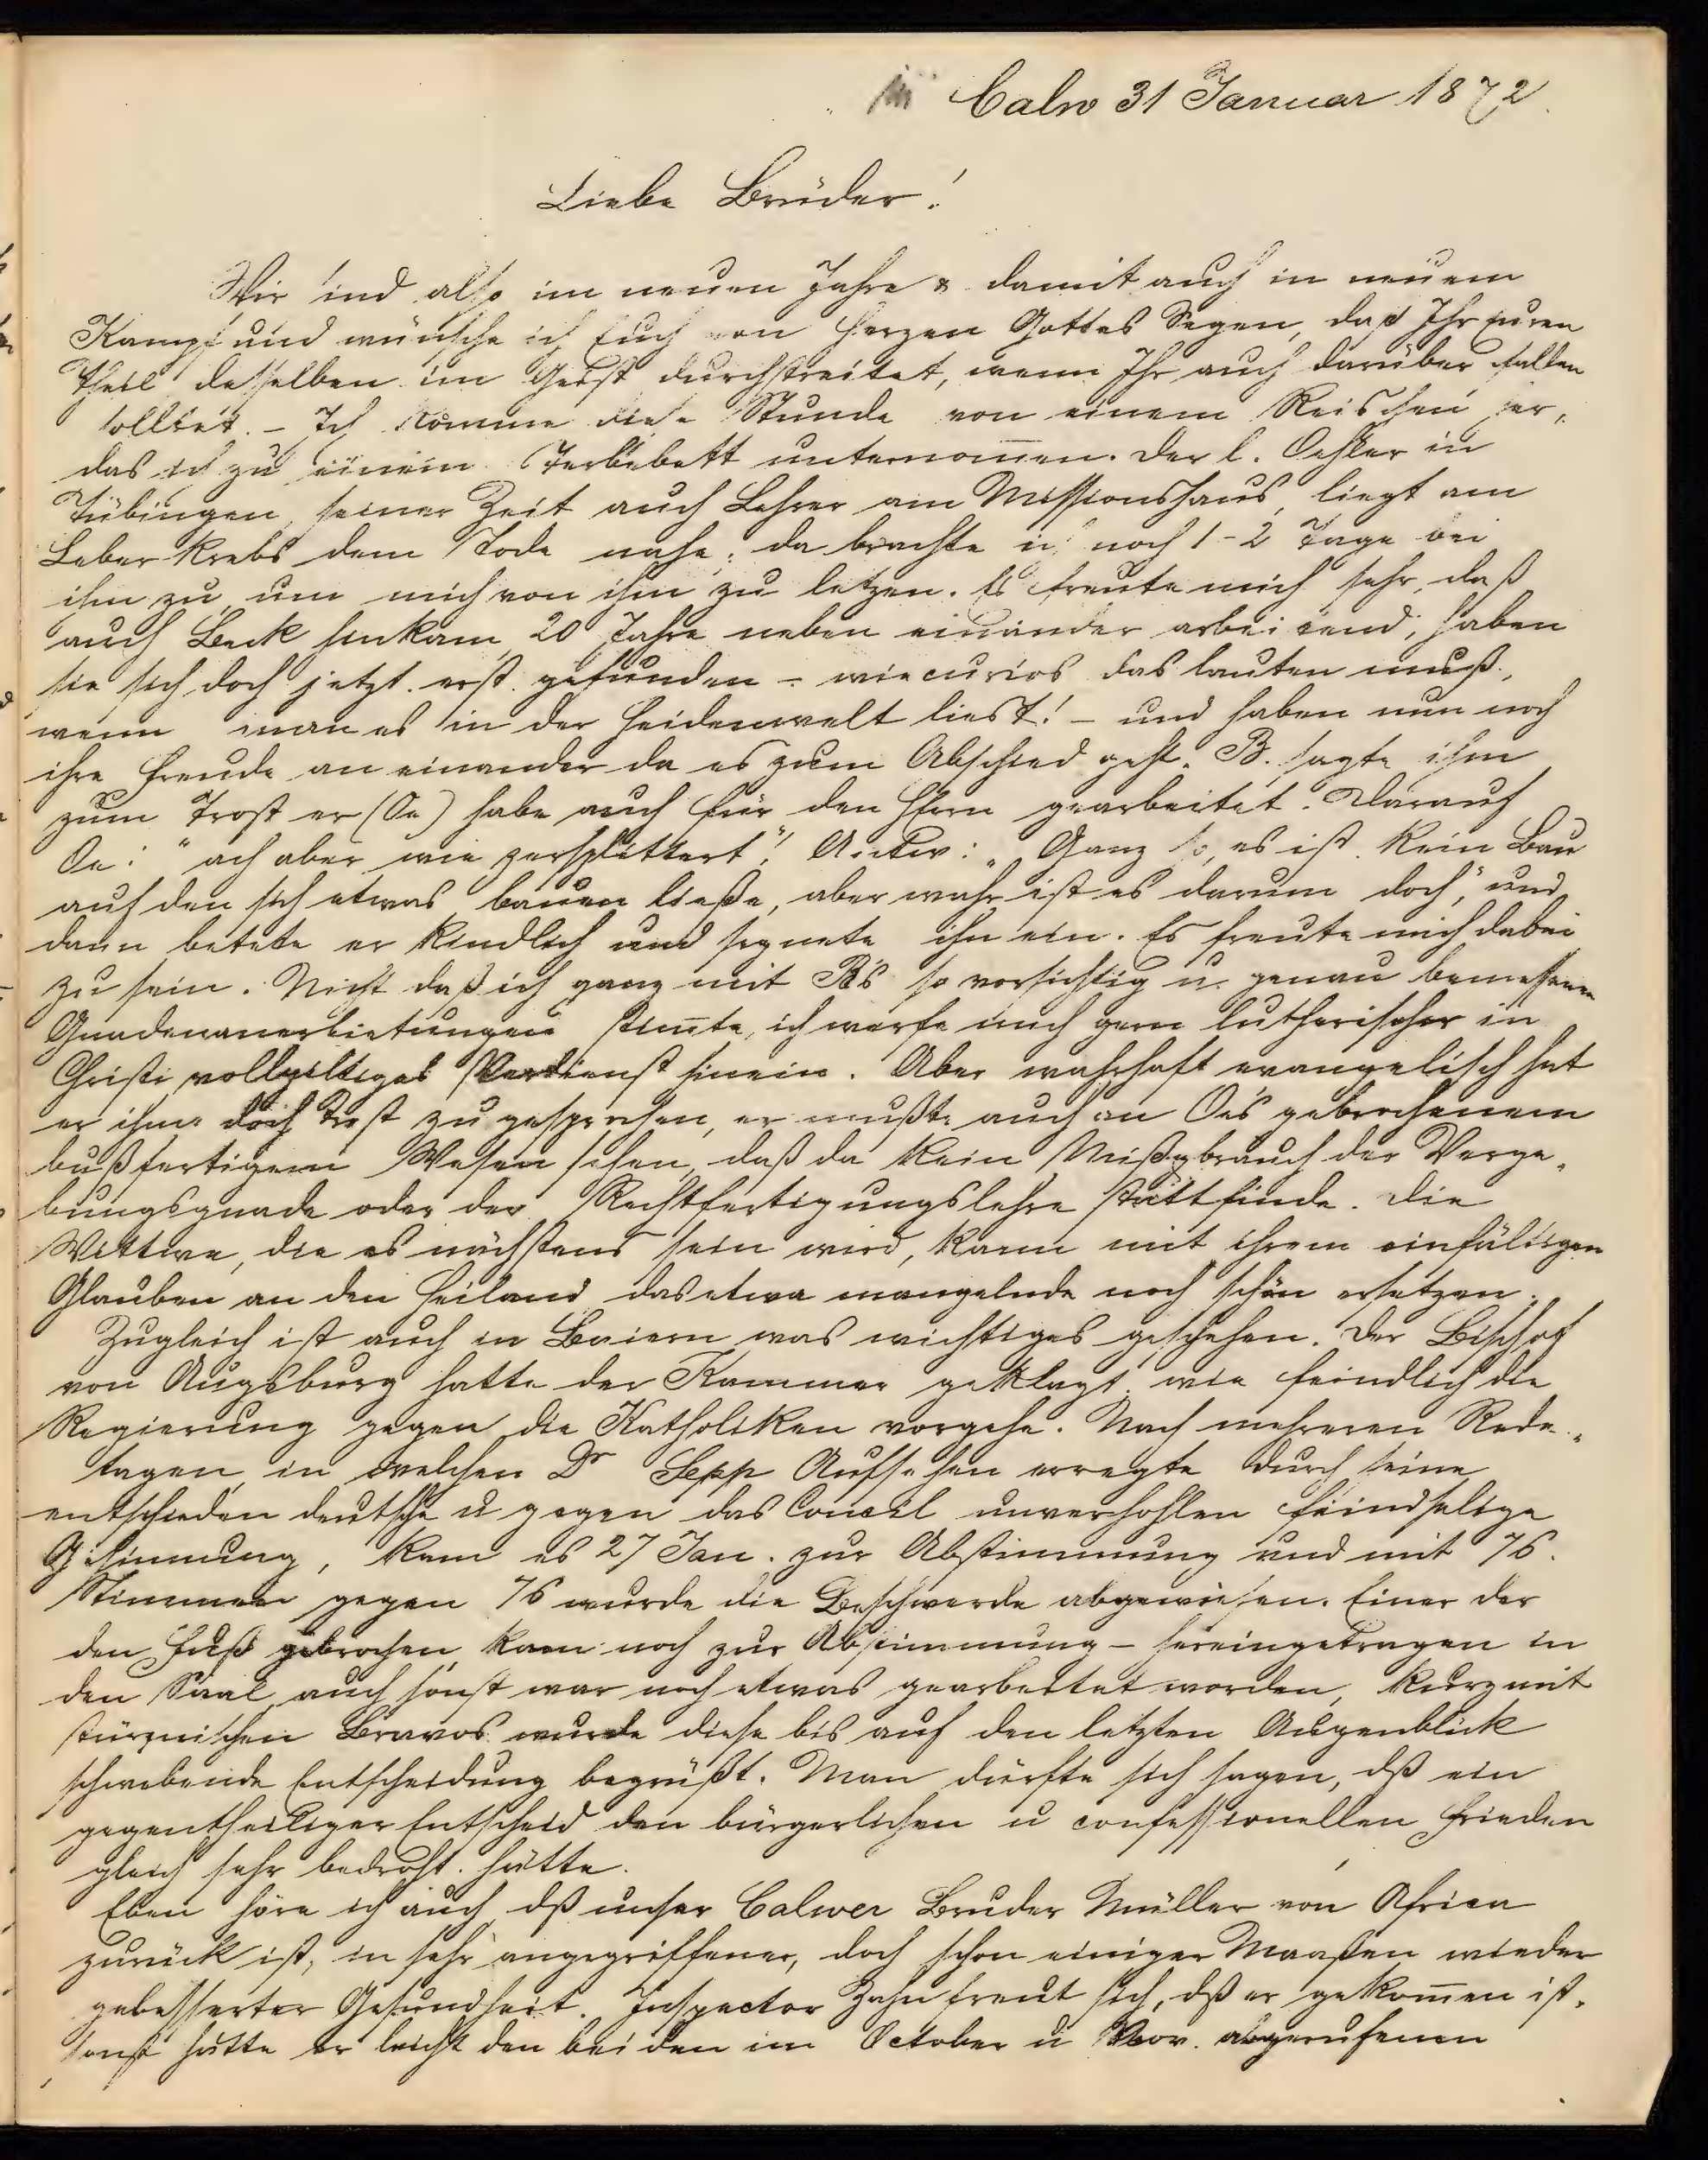 Calw 31 Januar 1872.
Liebe Brüder!
Wir sind also im neuen Jahre & damit auch in neuem
Kampf und wünsche ich Euch von Herzen Gottes Segen, daß Ihr euren
Theil desselben im Geist durchstreitet, wenn Ihr auch darüber fallen
solltet. - Ich komme diese Stunde von einem Reischen her,
das ich zu einem Sterbebett unternom̅en. Der l. Oehler in
Tübingen, seiner Zeit auch Lehrer am Missionshaus, liegt am
Leber Krebs dem Tode nahe; da brachte ich noch 1-2 Tage bei
ihm zu, um mich von ihm zu letzen. Es freute mich sehr, daß
auch Beck hinkam, 20 Jahre neben einander arbeitend, haben
sie sich doch jetzt erst gefunden - wie curios das lauten muß,
wenn man es in der Heidenwelt liest! - und haben nun noch
ihre Freude an einander da es zum Abschied geht. B. sagte ihm
zum Trost er (Oe) habe auch für den Herrn gearbeitet. Darauf
Oe: "ach aber wie zersplittert"! Antw: "Ganz so, es ist kein Bau
auf den sich etwas bauen ließe, aber wahr ist es darum doch," und
dann betete er kindlich und segnete ihn ein. Es freute mich dabei
zu sein. Nicht daß ich ganz mit B's so vorsichtig u. genau bemessenen
Gnadenanerbietungen stim̅te, ich werfe mich gern lutherischer in
Christi vollgiltiges Verdienst hinein. Aber wahrhaft evangelisch hat
er ihm doch Trost zu gesprochen, er mußte auch an Oe's gebrochenem
bußfertigem Wesen sehen, daß da kein Mißgbrauch der Verge-
bungsgnade oder der Rechtfertigungslehre stattfinde. Die
Wittwe, die es nächstens sein wird, kann mit ihrem einfältigen
Glauben an den Heiland das etwa mangelnde noch schön ersetzen.
Zugleich ist auch in Baiern was wichtiges geschehen. Der Bischof
von Augsburg hatte der Kammer geklagt, wie feindlich die
Regierung gegen die Katholiken vorgehe. Nach mehreren Rede-
tagen, in welchen Dr Sepp Aufsehen erregte durch seine
entschieden deutsche u gegen das Concil unverhohlen feindselige
Gesinnung, kam es 27 Jan. zur Abstimmung und mit 76.
Stimmen gegen 76 wurde die Beschwerde abgewiesen. Einer der
den Fuß gebrochen, kam noch zur Abstimmung - hereingetragen in
den Saal, auch sonst war noch etwas gearbeitet worden, kurz mit
stürmischen Bravos wurde diese bis auf den letzten Augenblick
schwebende Entscheidung begrüßt. Man dürfte sich sagen, dß ein
gegentheiliger Entscheid den bürgerlichen u confessionellen Frieden
gleich sehr bedroht hätte.
Eben höre ich auch dß unser Calwer Bruder Müller von Africa
zurück ist, in sehr angegriffener, doch schon einiger Maaßen wieder
gebesserter Gesundheit. Inspector Zahn freut sich, dß er gekom̅en ist,
sonst hätte er leicht den beiden im October u Nov. abgerufenen